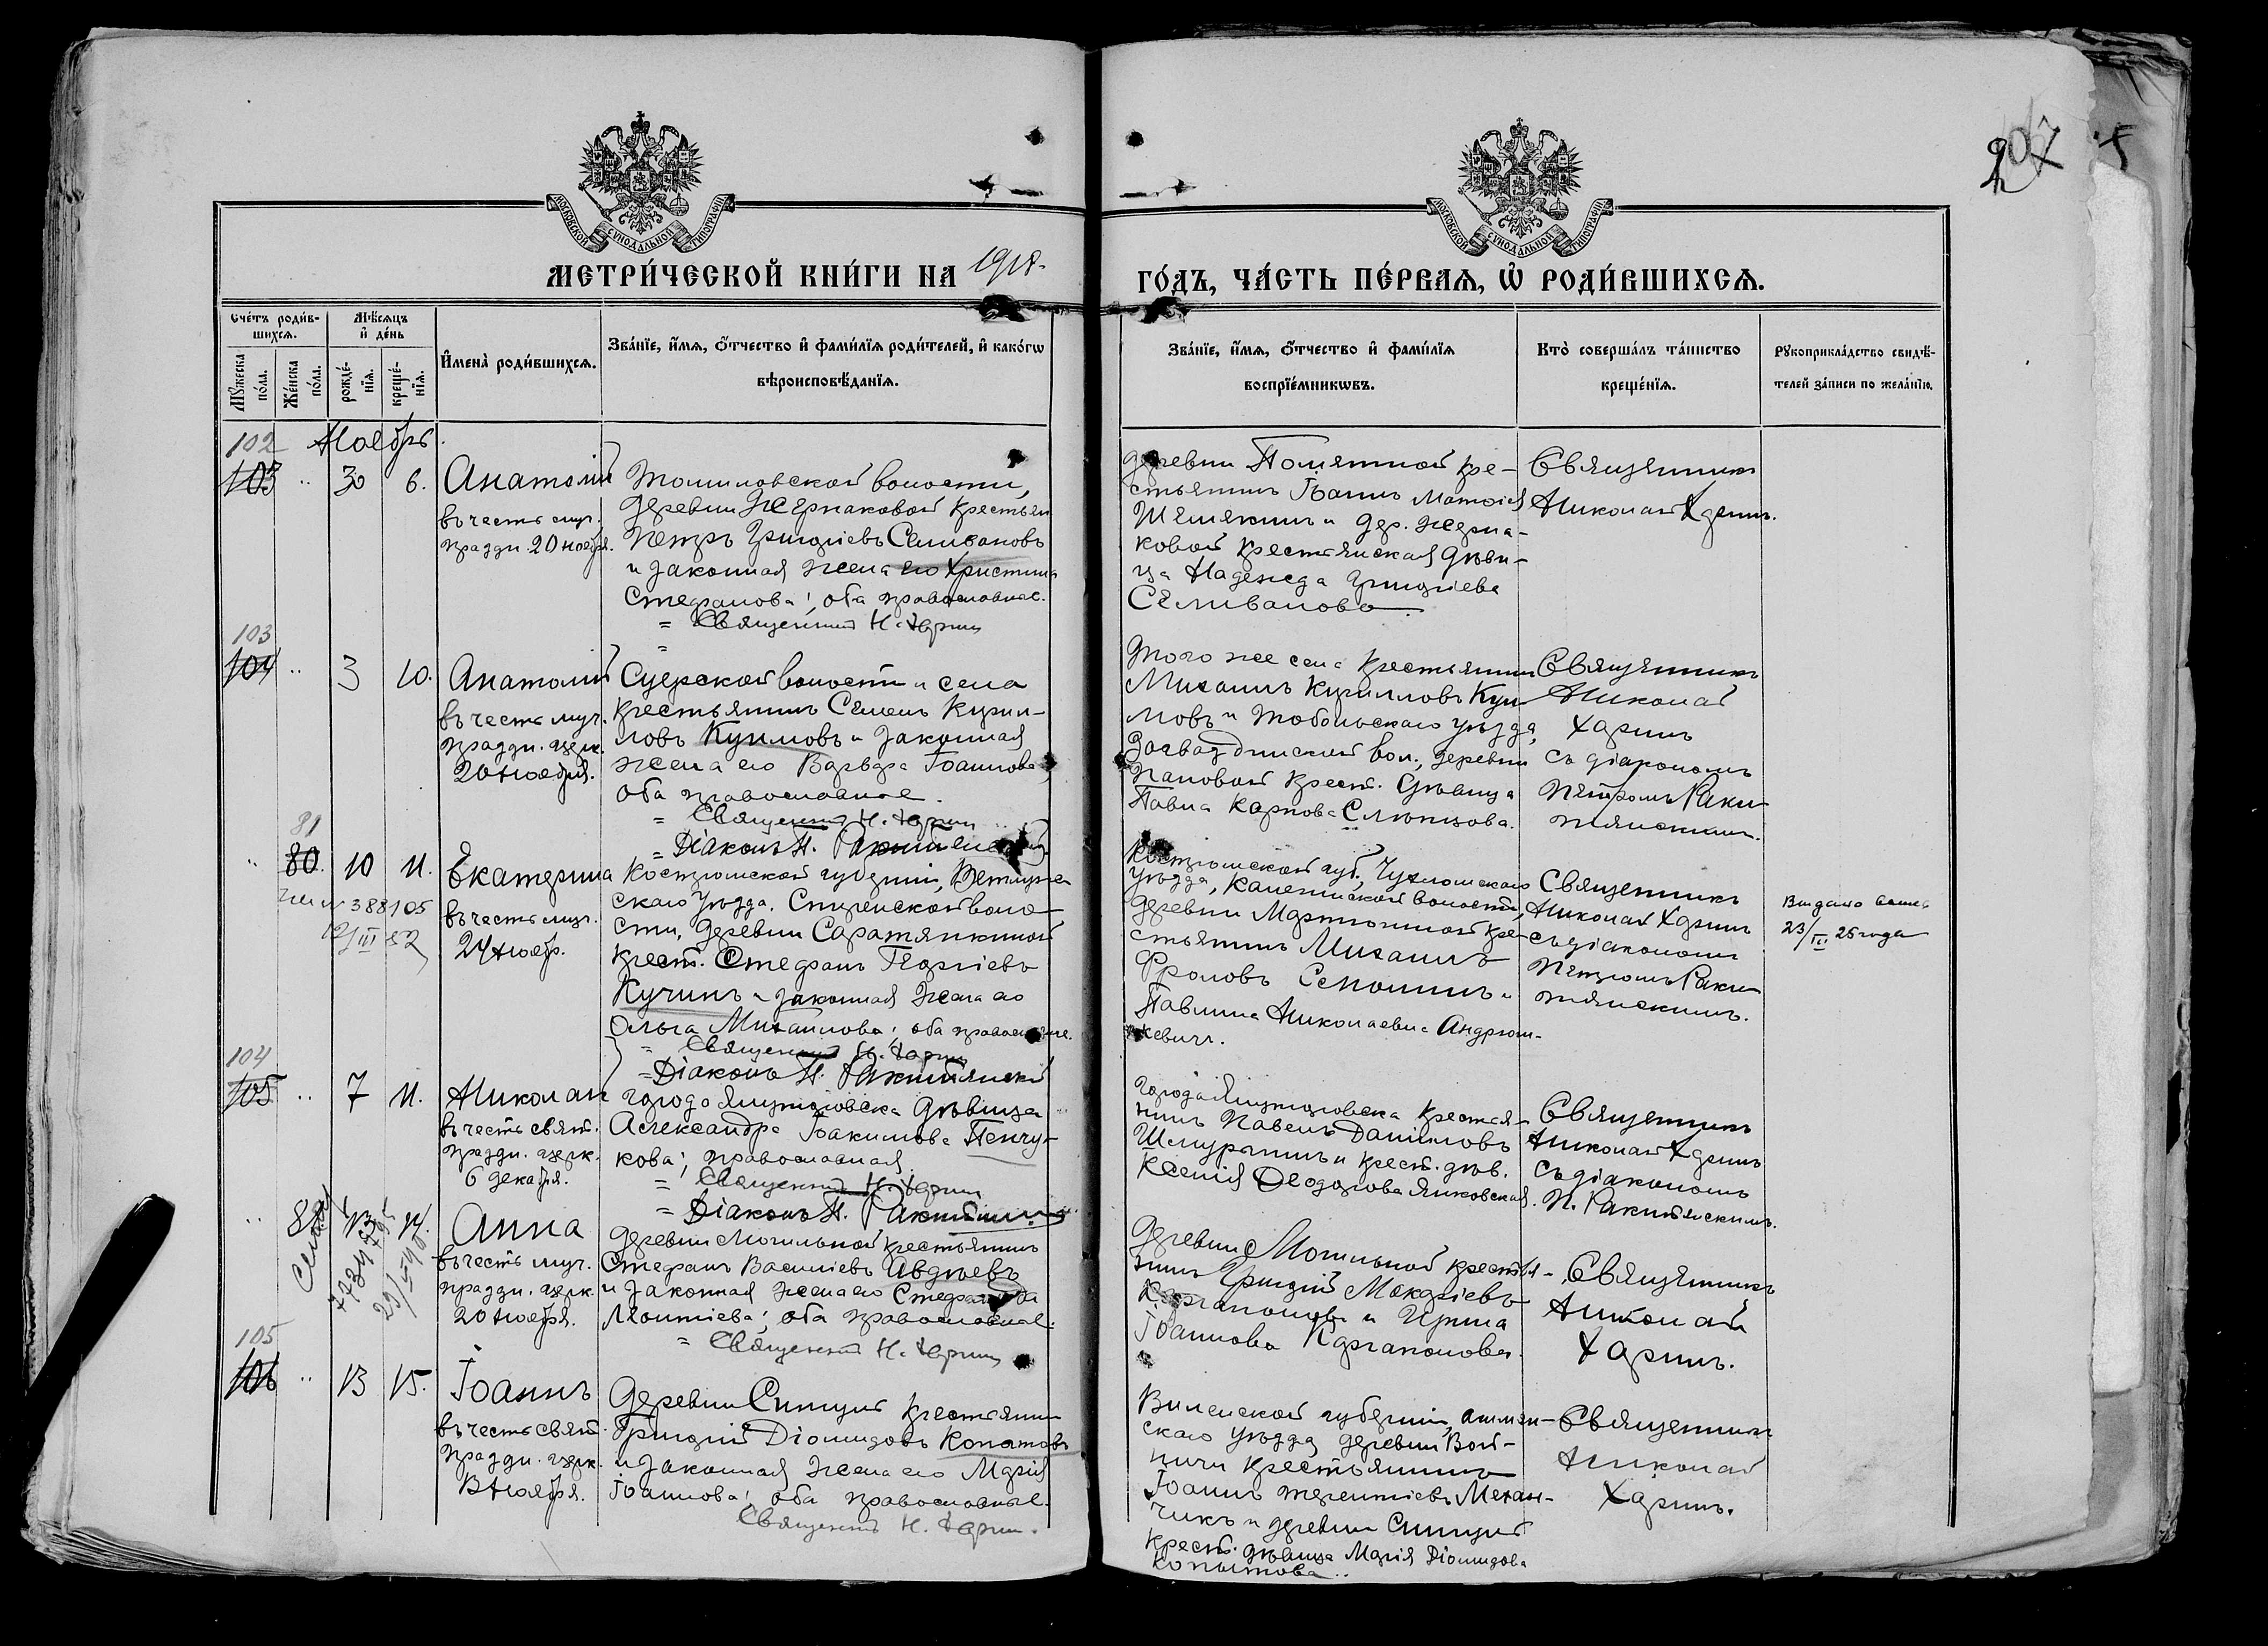 207
МОСКОВСКОЙ СѴНОДАЛЬНОЙ ТИПОГРАФІИ
МОСКОВСКОЙ СѴНОДАЛЬНОЙ ТИПОГРАФІИ
МЕТРИ́ЧЕСКОЙ КНИ́ГИ НА 1918.
ГО́ДЪ, ЧА́СТЬ ПЕ́РВАѦ, Ѡ҆ РОДИ́ВШИХСѦ.
Сче́тъ роди́в-
шихсѧ.
Мѣ́сѧцъ
и҆ де́нь
Мꙋ́жеска
по́ла.
Же́нска
по́ла.
рожде́-
нїѧ.
креще́-
нїѧ.
И҆мена̀ роди́вшихсѧ.
Зва́нїе, и҆́мѧ, ѻ҆́тчество и҆ фами́лїѧ роди́телей, и҆ како́гѡ
вѣроисповѣ́данїѧ.
Зва́нїе, и҆́мѧ, ѻ҆́тчество и҆ фами́лїѧ
воспрїе́мникѡвъ.
Кто̀ соверша́лъ та́инство
креще́нїѧ.
Рꙋкоприкла́дство свидѣ́-
телей за́писи по жела́нїю.
Ноябрь.
102
103 " 30 6. Анатолій
въ честь муч.
праздн. 20 ноября.
Томиловской волости,
деревни Жернаковой крестьян
Петръ Григоріевъ Селивановъ
и законная жена его Христина
Стефанова; оба православные.
= Священникъ Н. Харинъ
деревни Памятной кре-
стьянинъ Іоаннъ Матѳіев
Шемякинъ и дер. Жерна-
ковой крестьянская дѣви-
ца Надежда Григоріева
Селиванова.
Священникъ
Николай Харинъ.
103
104 " 3 10. Анатолій
въ честь муч.
праздн. церк.
20 ноября.
Суерской волости и села
крестьянинъ Семенъ Кирил-
ловъ Куимовъ и законная
жена его Варвара Іоаннова,
оба православные.
= Священникъ Н. Харинъ
= Діаконъ П. Ракитянскій
Того же села крестьянинъ
Михаилъ Кирилловъ Куи-
мовъ и Тобольскаго уѣзда,
вол., деревни
Пановой крест. дѣвица
Павла Карпова Слюнцова.
Священникъ
Николай
Харинъ
съ діакономъ
Петромъ Раки-
тянскимъ.
81
" 80. 10 11. Екатерина
388105
12/III 52
въ честь муч.
24 ноябр.
Костромской губерніи, Ветлуж-
скаго уѣзда, воло-
сти, деревни Саратянкиной
крест. Стефанъ Георгіевъ
Кучинъ и законная жена его
Ольга Михаилова; оба православные.
= Священникъ Н. Харинъ
= Діаконъ П. Ракитянскій
Костромской губ., Чухломскаго
уѣзда, волости,
деревни Мартыниной кре-
стьянинъ Михаилъ
Фроловъ и
Павлина Николаевна Андрюш-
кевичъ.
Священникъ
Николай Харинъ
съ діакономъ
Петромъ Раки-
тянскимъ.
Выдано
23/III 25 года
104
105 " 7 11. Николай
въ честь свят.
праздн. церк.
6 декабря.
города Ялуторовска дѣвица
Александра Іоакимова Пенчу-
кова; православная.
= Священникъ Н. Харинъ
= Діаконъ П. Ракитянскій
города Ялуторовска крестья-
нинъ Павелъ Даніиловъ
Шмурыгинъ и крест. дѣв.
Ксенія Ѳеодорова Янковская.
Священникъ
Николай Харинъ
съ діакономъ
П. Ракитянскимъ.
" 13 14. Анна
въ честь муч.
праздн. церк.
20 ноября.
деревни Могильной крестьянинъ
Стефанъ Василіевъ Авдѣевъ
и законная жена его Стефанида
Леонтіева; оба православные.
= Священникъ Н. Харинъ
деревни Могильной крестья-
нинъ Григорій Макаріевъ
Каргаполовъ и Ирина
Іоаннова Каргаполова.
Священникъ
Николай
Харинъ.
105
106 " 13 15. Іоаннъ
въ честь свят.
праздн. церк.
13 ноября.
деревни Сингуля крестьянинъ
Григорій Діомидовъ Копытовъ
и законная жена его Марія
Іоаннова; оба православные.
Священникъ Н. Харинъ.
Виленской губерніи, Ошмян-
скаго уѣзда деревни Вой-
ничи крестьянинъ
Іоаннъ Терентіевъ Механ-
чикъ и деревни Сингуля
крест. дѣвица Марія Діомидова
Копытова.
Священникъ
Николай
Харинъ.